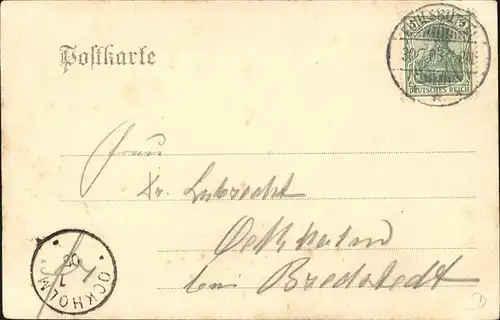 Postkarte
DEUTSCHES REICH
Frau
Dr. Lubrecht
Ockholm
bei Bredstedt
OCKHOLM